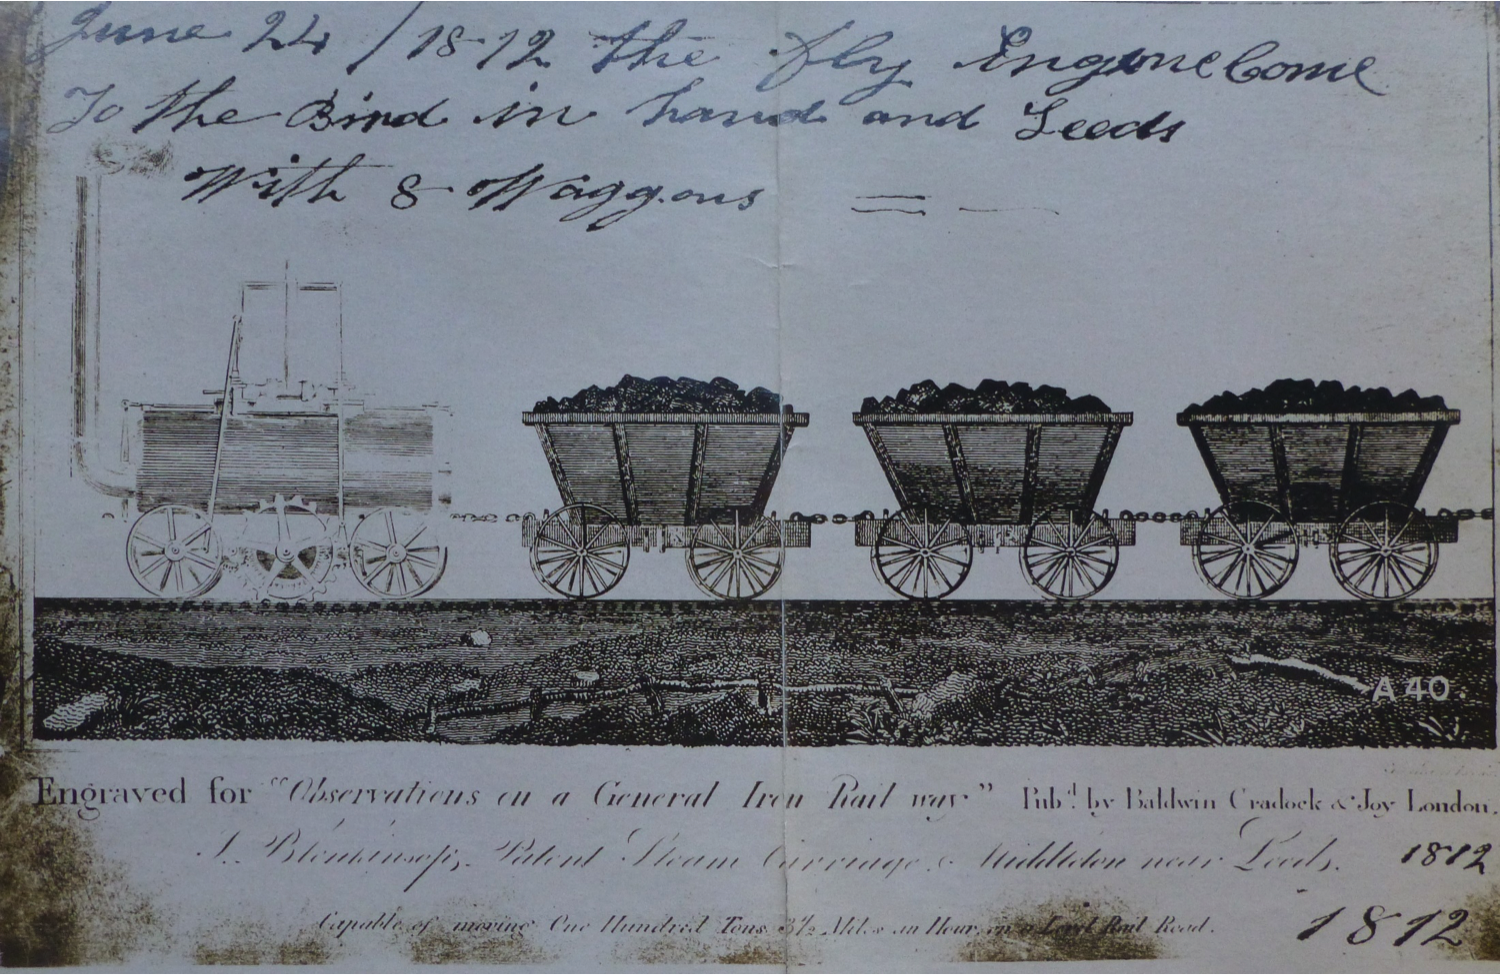 June 24 / 1812 the fly Engine Come
To the Bird in hand and Leeds
With 8 Waggons
A 40.
Engraved for "Observations on a General Iron Rail way" Pubd. by Baldwin Cradock & Joy London.
J. Blenkinsop's Patent Steam Carriage Middleton near Leeds. 1812
Capable of moving One Hundred Tons 3½ Miles an Hour on a Level Rail Road. 1812